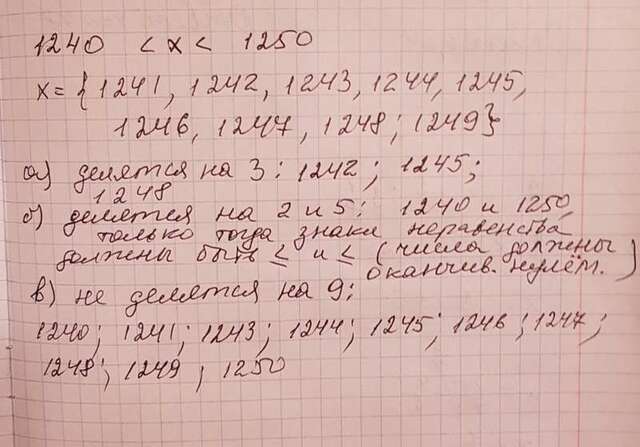 1240 < x < 1250
x = { 1241, 1242, 1243, 1244, 1245,
1246, 1247, 1248; 1249}
а) делятся на 3: 1242; 1245;
1248
б) делятся на 2 и 5: 1240 и 1250,
только тогда знаки неравенства
должны быть ≤ и ≤ (числа должны
оканчив. нулём.)
в) не делятся на 9:
1240; 1241; 1243; 1244; 1245; 1246; 1247;
1248; 1249; 1250